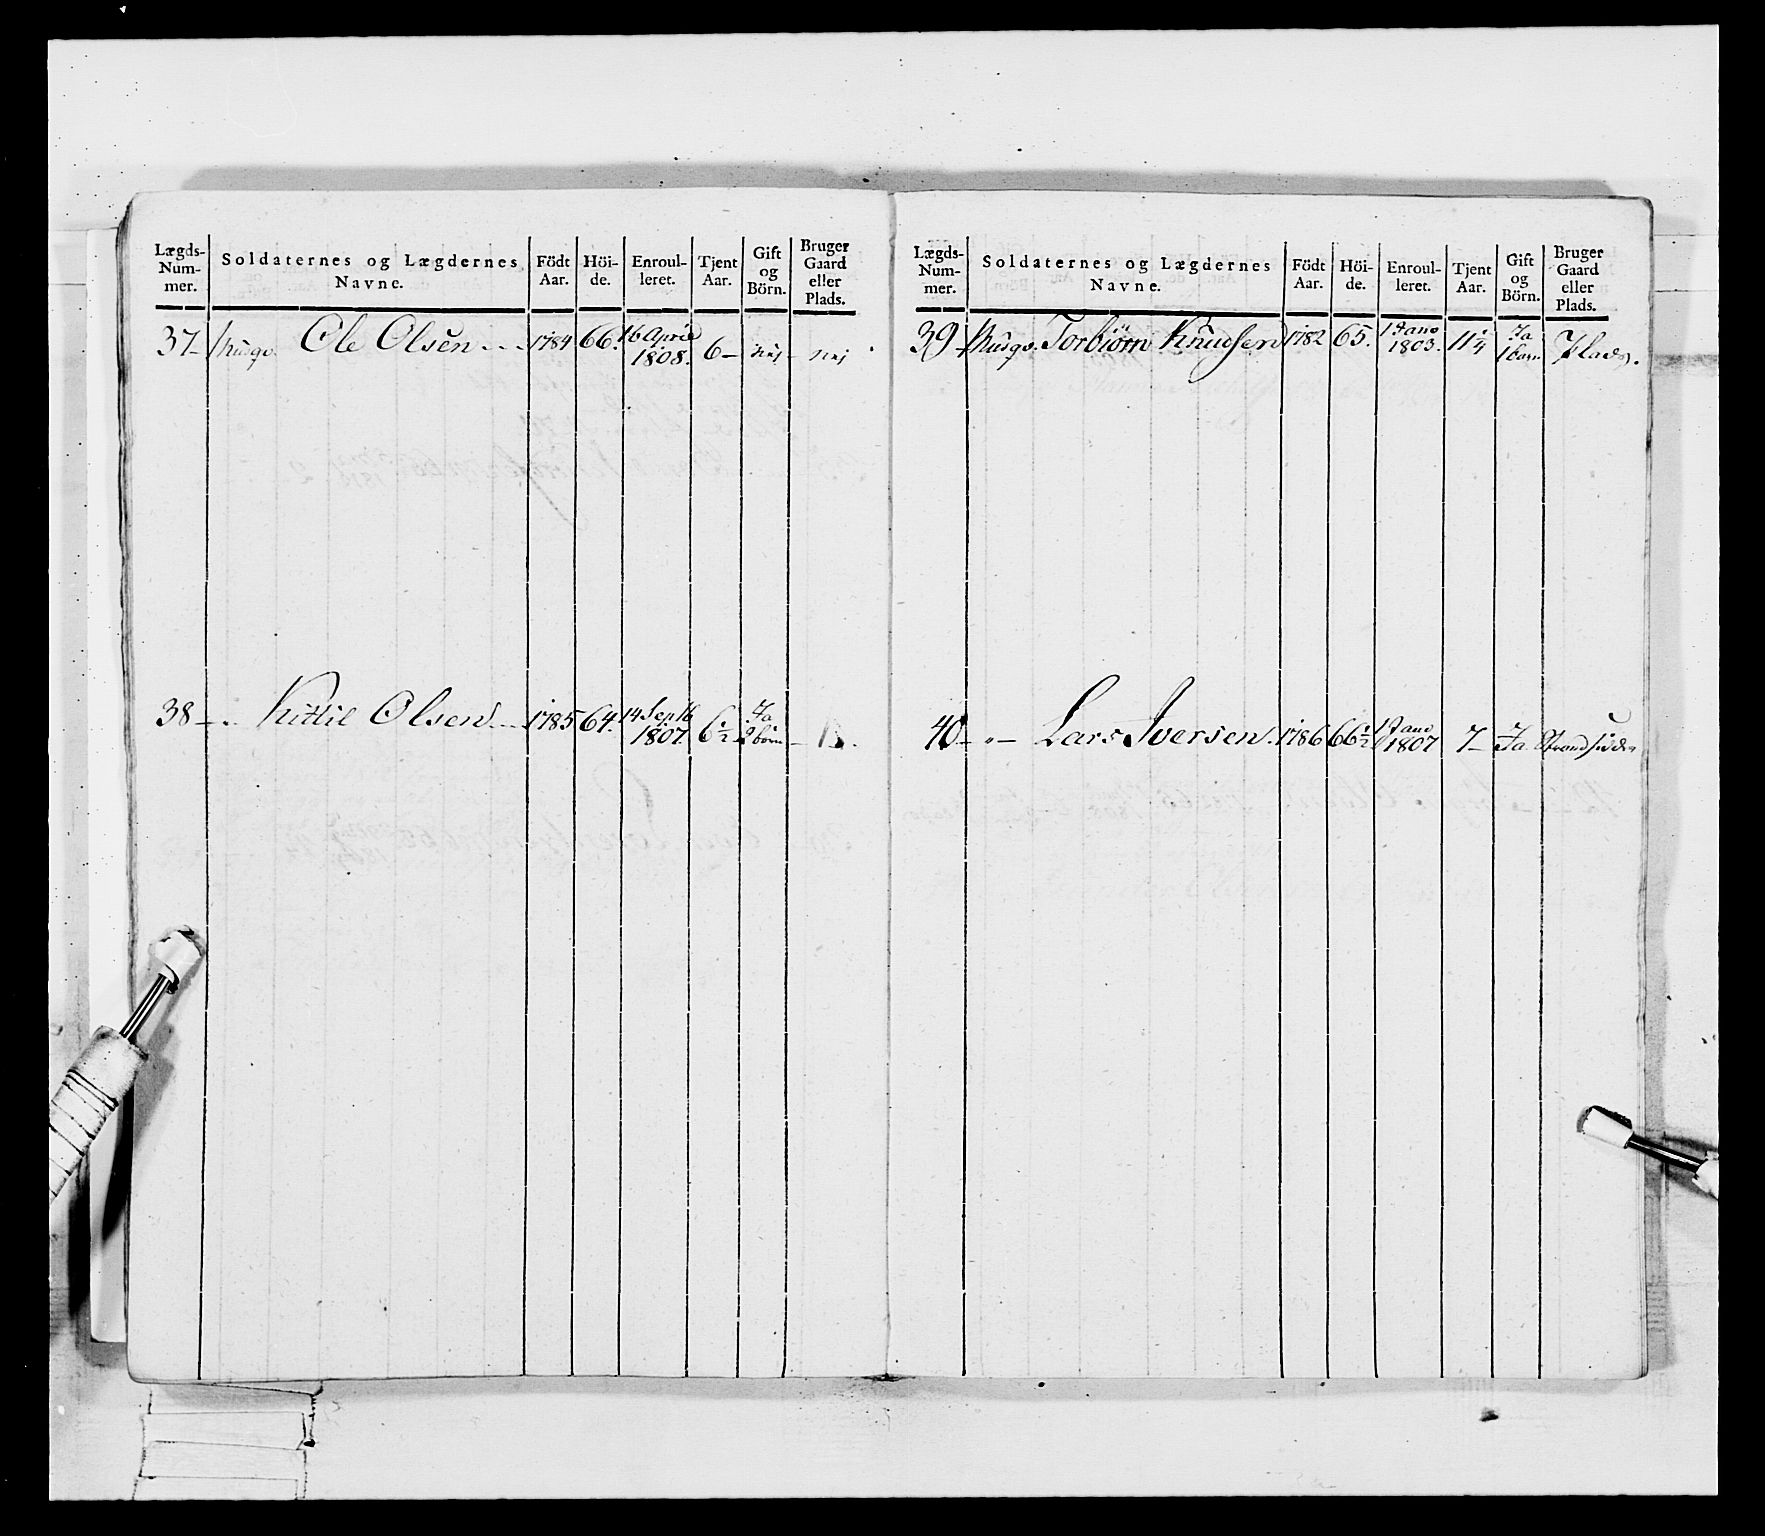 Lægds-Num-mer. Soldaternes og Lægdernes Navne. Födt Aar. Höi-de. Enroul-leret. Tjent Aar. Gift og Börn. Bruger Gaard eller Plads.
37 Musqv. Ole Olsen 1784 66. 16 April 1808. 6 nej nej
38 " Kittil Olsen 1785 64. 14 Sept 1807. 6 1/2 Ja 2 börn
Lægds-Num-mer. Soldaternes og Lægdernes Navne. Födt Aar. Höi-de. Enroul-leret. Tjent Aar. Gift og Börn. Bruger Gaard eller Plads.
39 Musqv. Torbiörn Knudsen 1782 65. 1 Janv 1803. 11 1/4 Ja 1 barn Plads.
40 " Lars Iversen 1786 66 1/2 1 Janv 1807 7 Ja Strandsidder